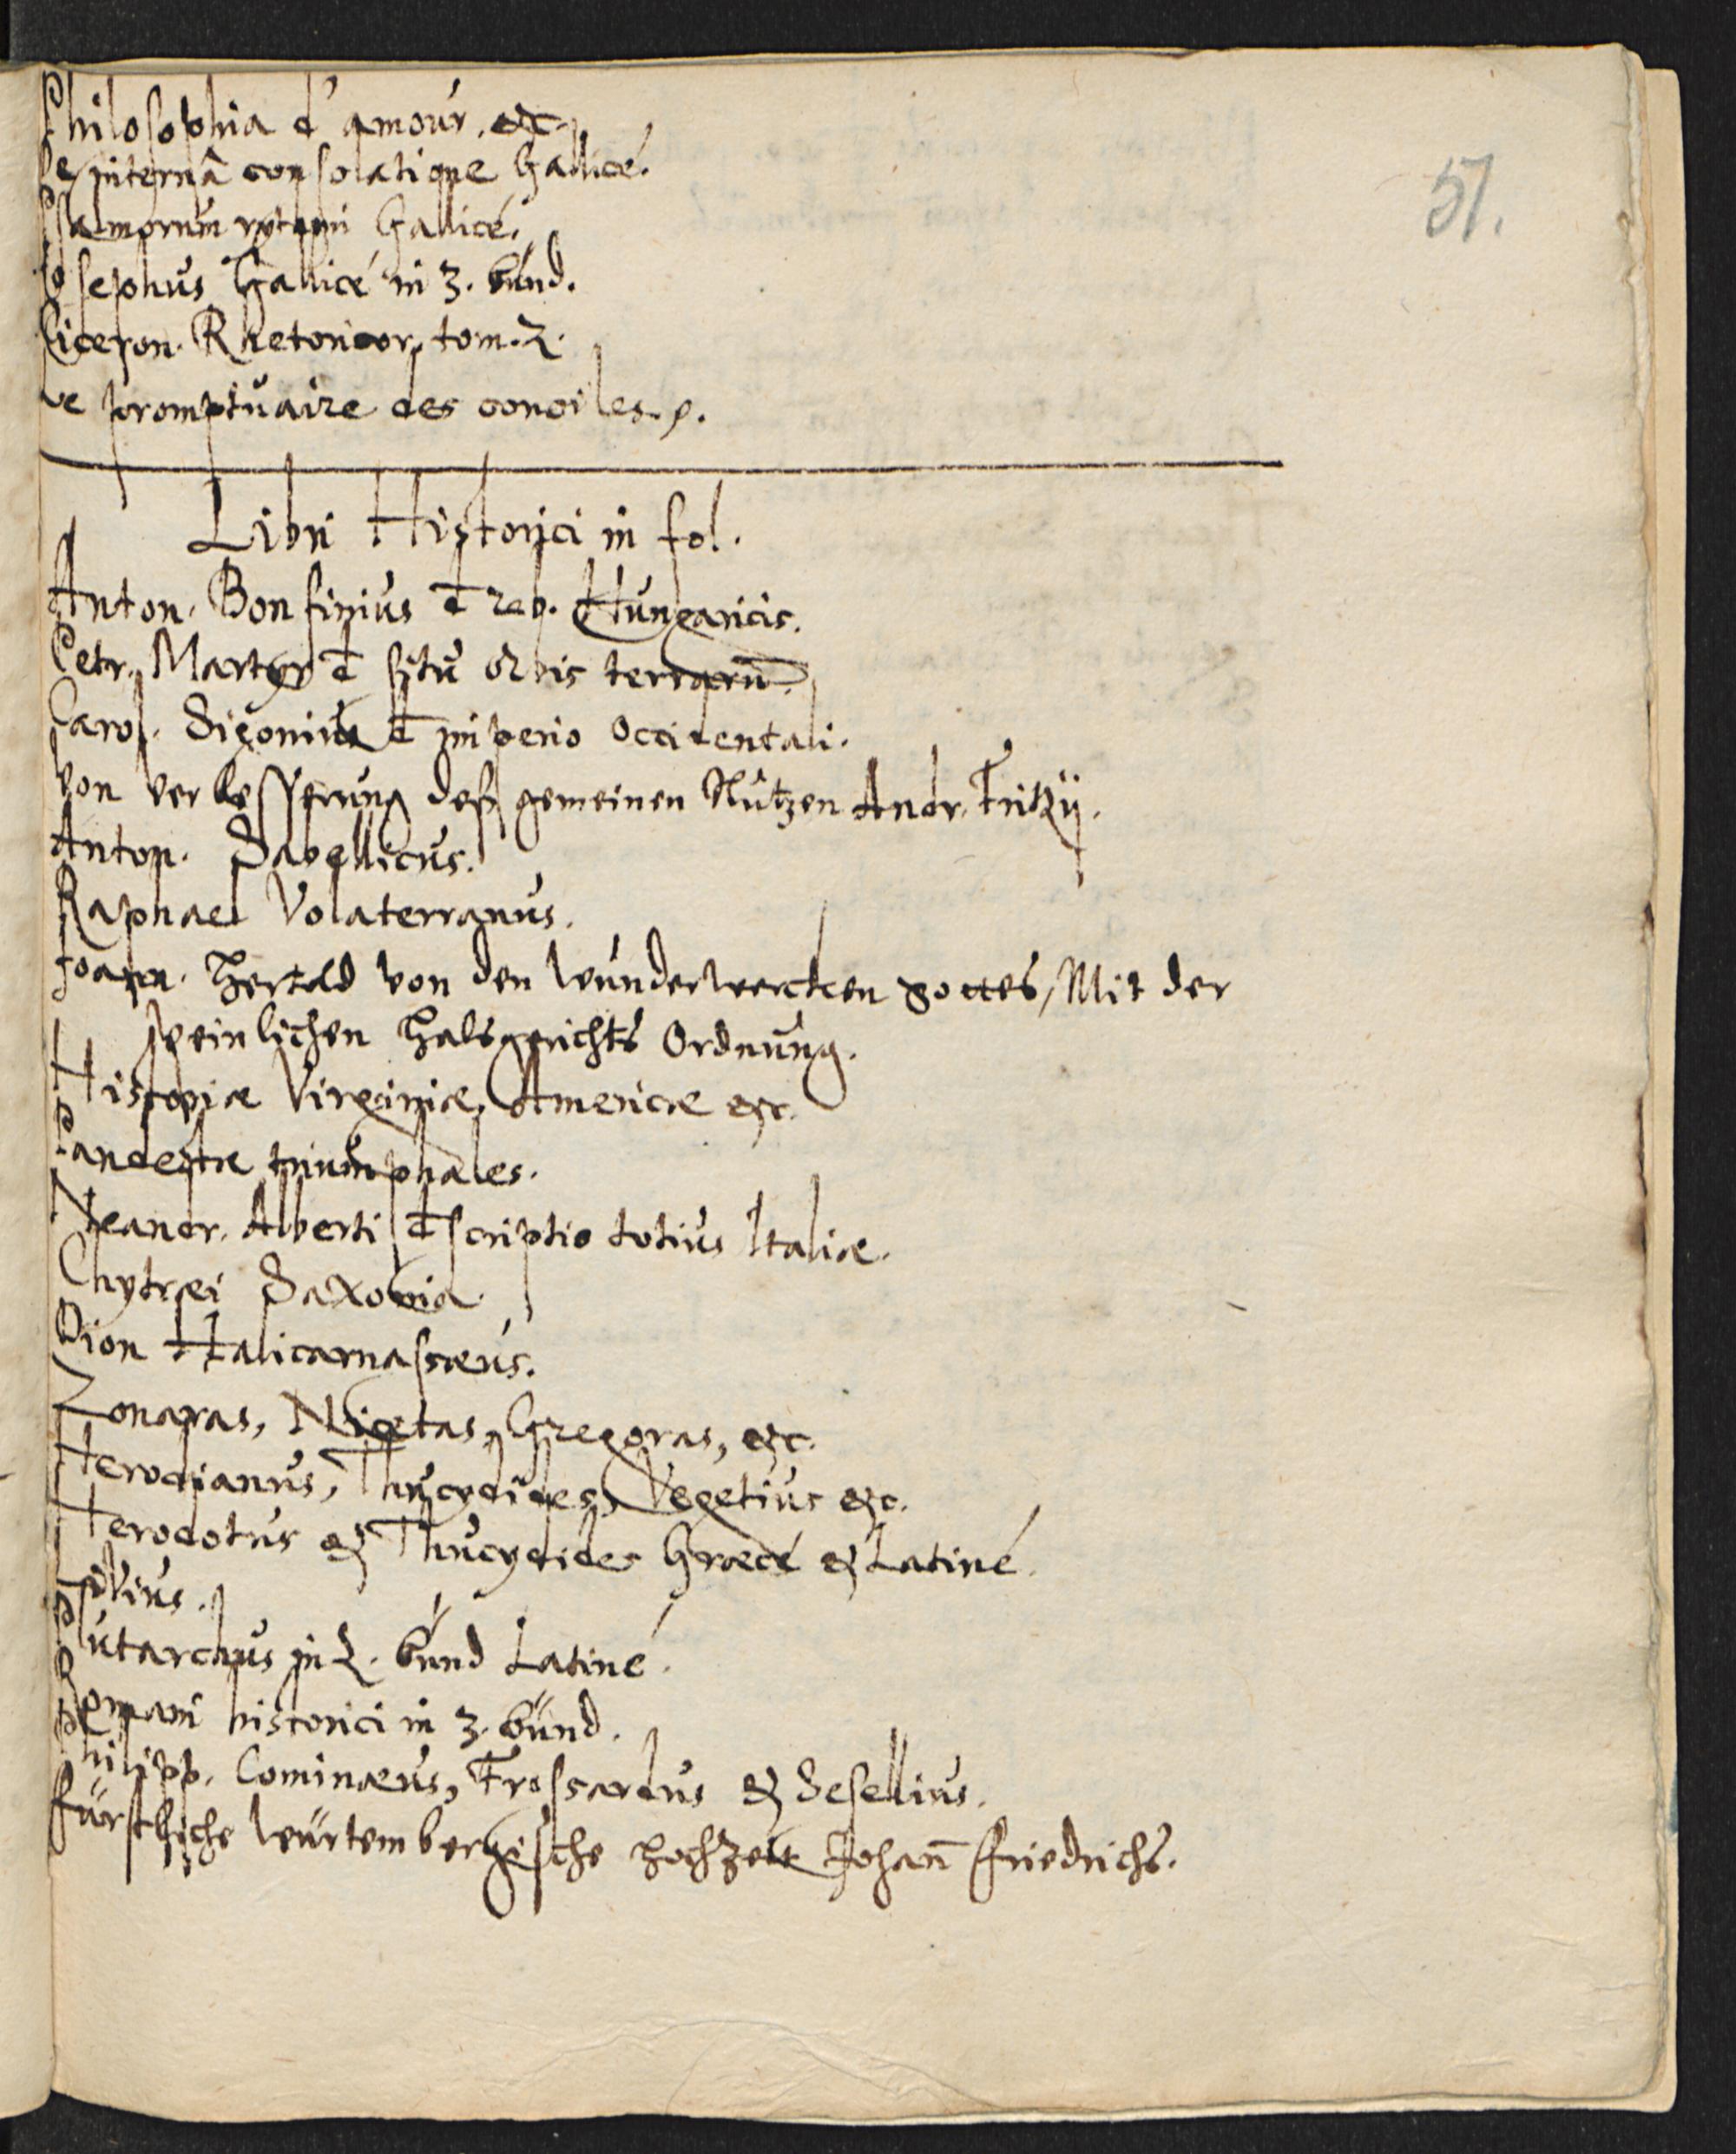 Philosophia d'amour. etc.
De internâ consolatione Gallicé.
Psalmorum rytmi Gallicé.
Josephus Gallicé in 3. bünd.
Ciceron. Rhetoricor. tom. 2.
Le promptuaire des conciles. p.
51.
Libri Historici in fol.
Anton. Bonfinius de reb. Hungaricis.
Petr. Martyr de sitû orbis terrarū.
Carol. Sigonius de imperio Occidentali.
Von verbesserung deß gemeinen Nutzen Andr. Frickij.
Anton. Sabellicus.
Raphael Volaterranus.
Joann. Herold von den wunderwercken gottes, Mit der
peinlichen Halsgerichts Ordnung.
Historiæ Virginiæ, Americæ etc.
Pandectæ triumphales.
Leandr. Alberti descriptio totius Italiæ.
Chytræi Saxonia.
Dion Halicarnasseus.
Zonaras, Nicetas, Gregoras, etc.
Herodianus, Thucydides, Vegetius etc.
Herodotus & Thucydides Græcé & Latiné.
Plutarchus in 2. bünd Latiné.
Romani historici in 3. bünd.
Philipp. Cominæus, Frossardus & Sesellius.
Fürstliche Würtembergische Hochzeit Johann̄ Friedrichs.